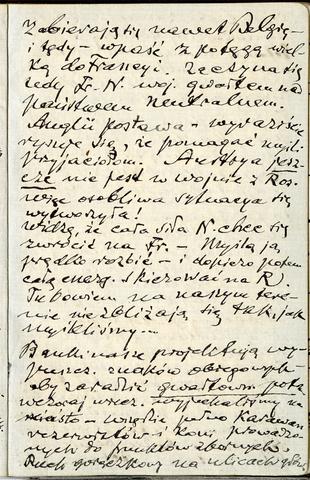 zabierają się nawet Belgię –
i tędy – wpaść z potęgą wiel-
ką do Francyi. Zaczyna się
tedy Fr. N. woj. gwałtem na
państwem neutralnem.
Anglii postawa – wyraziście
rysuje się, że pomagać myśli
przyjaciołom. Austrya jesz-
cze nie jest w wojnie z Ros-
osobliwa sytuacya się
wytworzyła!
Widzę, że cała siła N. chce się
zwrócić na Fr. – Myślą ją
prędko rozbić – i dopiero potem
całą energ. skierować na R.
Tu bowiem na naszym tere-
nie nie zbliżają się tak, jak
myśliliśmy...
Banki nasze projektują wy-
puszcz. znaków obiegowych –
aby zaradzić gwałtown. potrz.
wczoraj wiecz. wyjechaliśmy na
miasto – wszędzie pełno karawan
rezerwistów i koni, prowadzo-
nych do punktów zbornych.
Ruch gorączkowy na ulicach